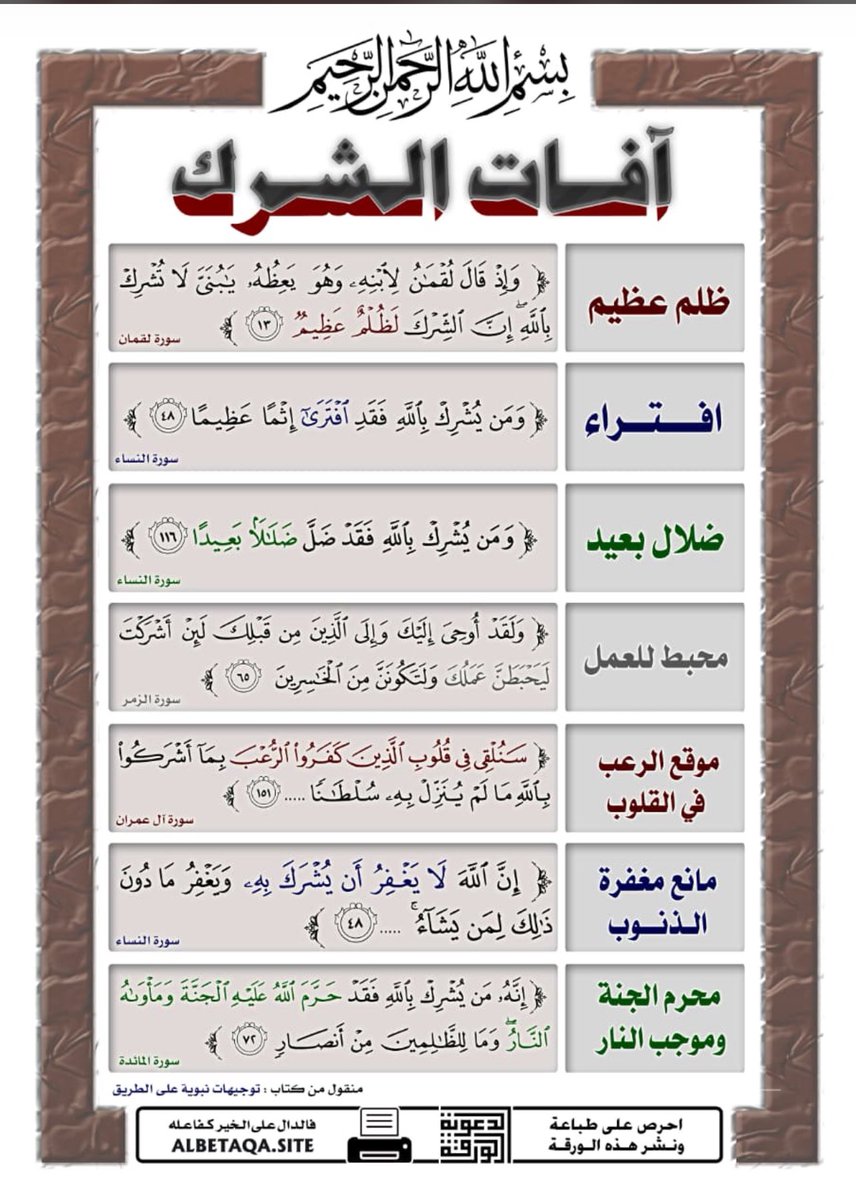 بِسْمِ اللَّهِ الرَّحْمَٰنِ الرَّحِيمِ
آفات الشرك
ظلم عظيم
﴿ وَإِذْ قَالَ لُقْمَـٰنُ لِٱبْنِهِۦ وَهُوَ يَعِظُهُۥ يَـٰبُنَىَّ لَا تُشْرِكْ
بِٱللَّهِ ۖ إِنَّ ٱلشِّرْكَ لَظُلْمٌ عَظِيمٌ ١٣ ﴾
سورة لقمان
افـتـراء
﴿ وَمَن يُشْرِكْ بِٱللَّهِ فَقَدِ ٱفْتَرَىٰٓ إِثْمًا عَظِيمًا ٤٨ ﴾
سورة النساء
ضلال بعيد
﴿ وَمَن يُشْرِكْ بِٱللَّهِ فَقَدْ ضَلَّ ضَلَـٰلًۢا بَعِيدًا ١١٦ ﴾
سورة النساء
محبط للعمل
﴿ وَلَقَدْ أُوحِىَ إِلَيْكَ وَإِلَى ٱلَّذِينَ مِن قَبْلِكَ لَئِنْ أَشْرَكْتَ
لَيَحْبَطَنَّ عَمَلُكَ وَلَتَكُونَنَّ مِنَ ٱلْخَـٰسِرِينَ ٦٥ ﴾
سورة الزمر
موقع الرعب
في القلوب
﴿ سَنُلْقِى فِى قُلُوبِ ٱلَّذِينَ كَفَرُوا۟ ٱلرُّعْبَ بِمَآ أَشْرَكُوا۟
بِٱللَّهِ مَا لَمْ يُنَزِّلْ بِهِۦ سُلْطَـٰنًا ..... ١٥١ ﴾
سورة آل عمران
مانع مغفرة
الـذنـوب
﴿ إِنَّ ٱللَّهَ لَا يَغْفِرُ أَن يُشْرَكَ بِهِۦ وَيَغْفِرُ مَا دُونَ
ذَٰلِكَ لِمَن يَشَآءُ ۚ ..... ٤٨ ﴾
سورة النساء
محرم الجنة
وموجب النار
﴿ إِنَّهُۥ مَن يُشْرِكْ بِٱللَّهِ فَقَدْ حَرَّمَ ٱللَّهُ عَلَيْهِ ٱلْجَنَّةَ وَمَأْوَىٰهُ
ٱلنَّارُ ۖ وَمَا لِلظَّـٰلِمِينَ مِنْ أَنصَارٍ ٧٢ ﴾
سورة المائدة
منقول من كتاب : توجيهات نبوية على الطريق
احرص على طباعة
ونشر هذه الورقة
الورقة
الدعوية
فالدال على الخير كفاعله
ALBETAQA.SITE